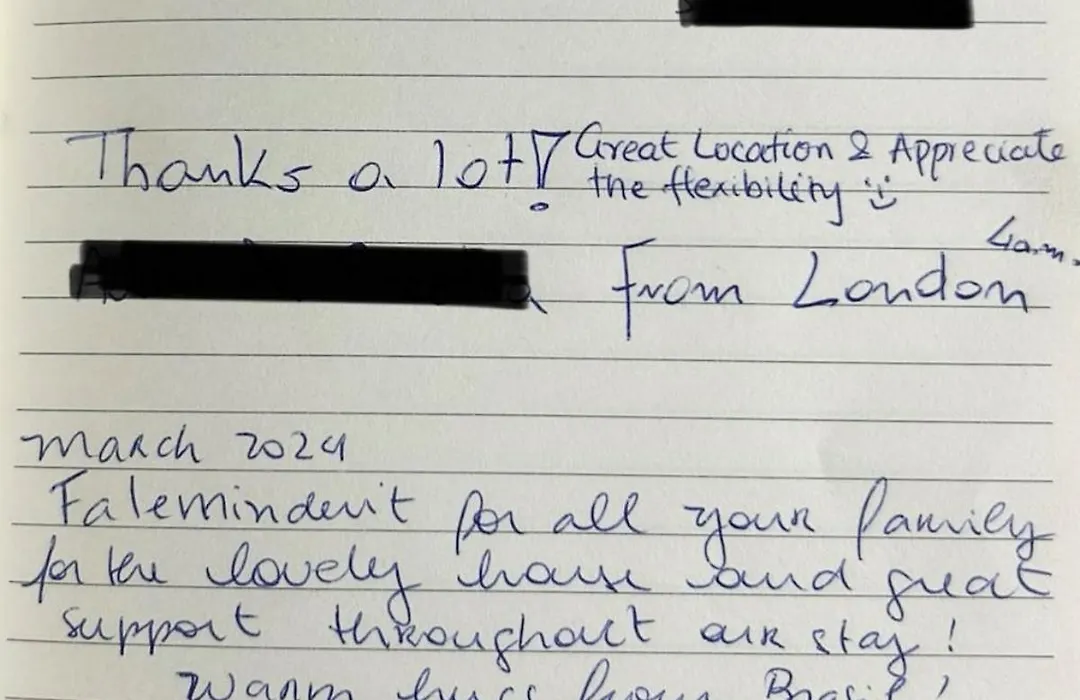 Thanks a lot! Great Location & Appreciate
the flexibility :)
4a.m.
From London
March 2024
Faleminderit for all your family
for the lovely house and great
support throughout our stay!
Warm hugs from Brasil!